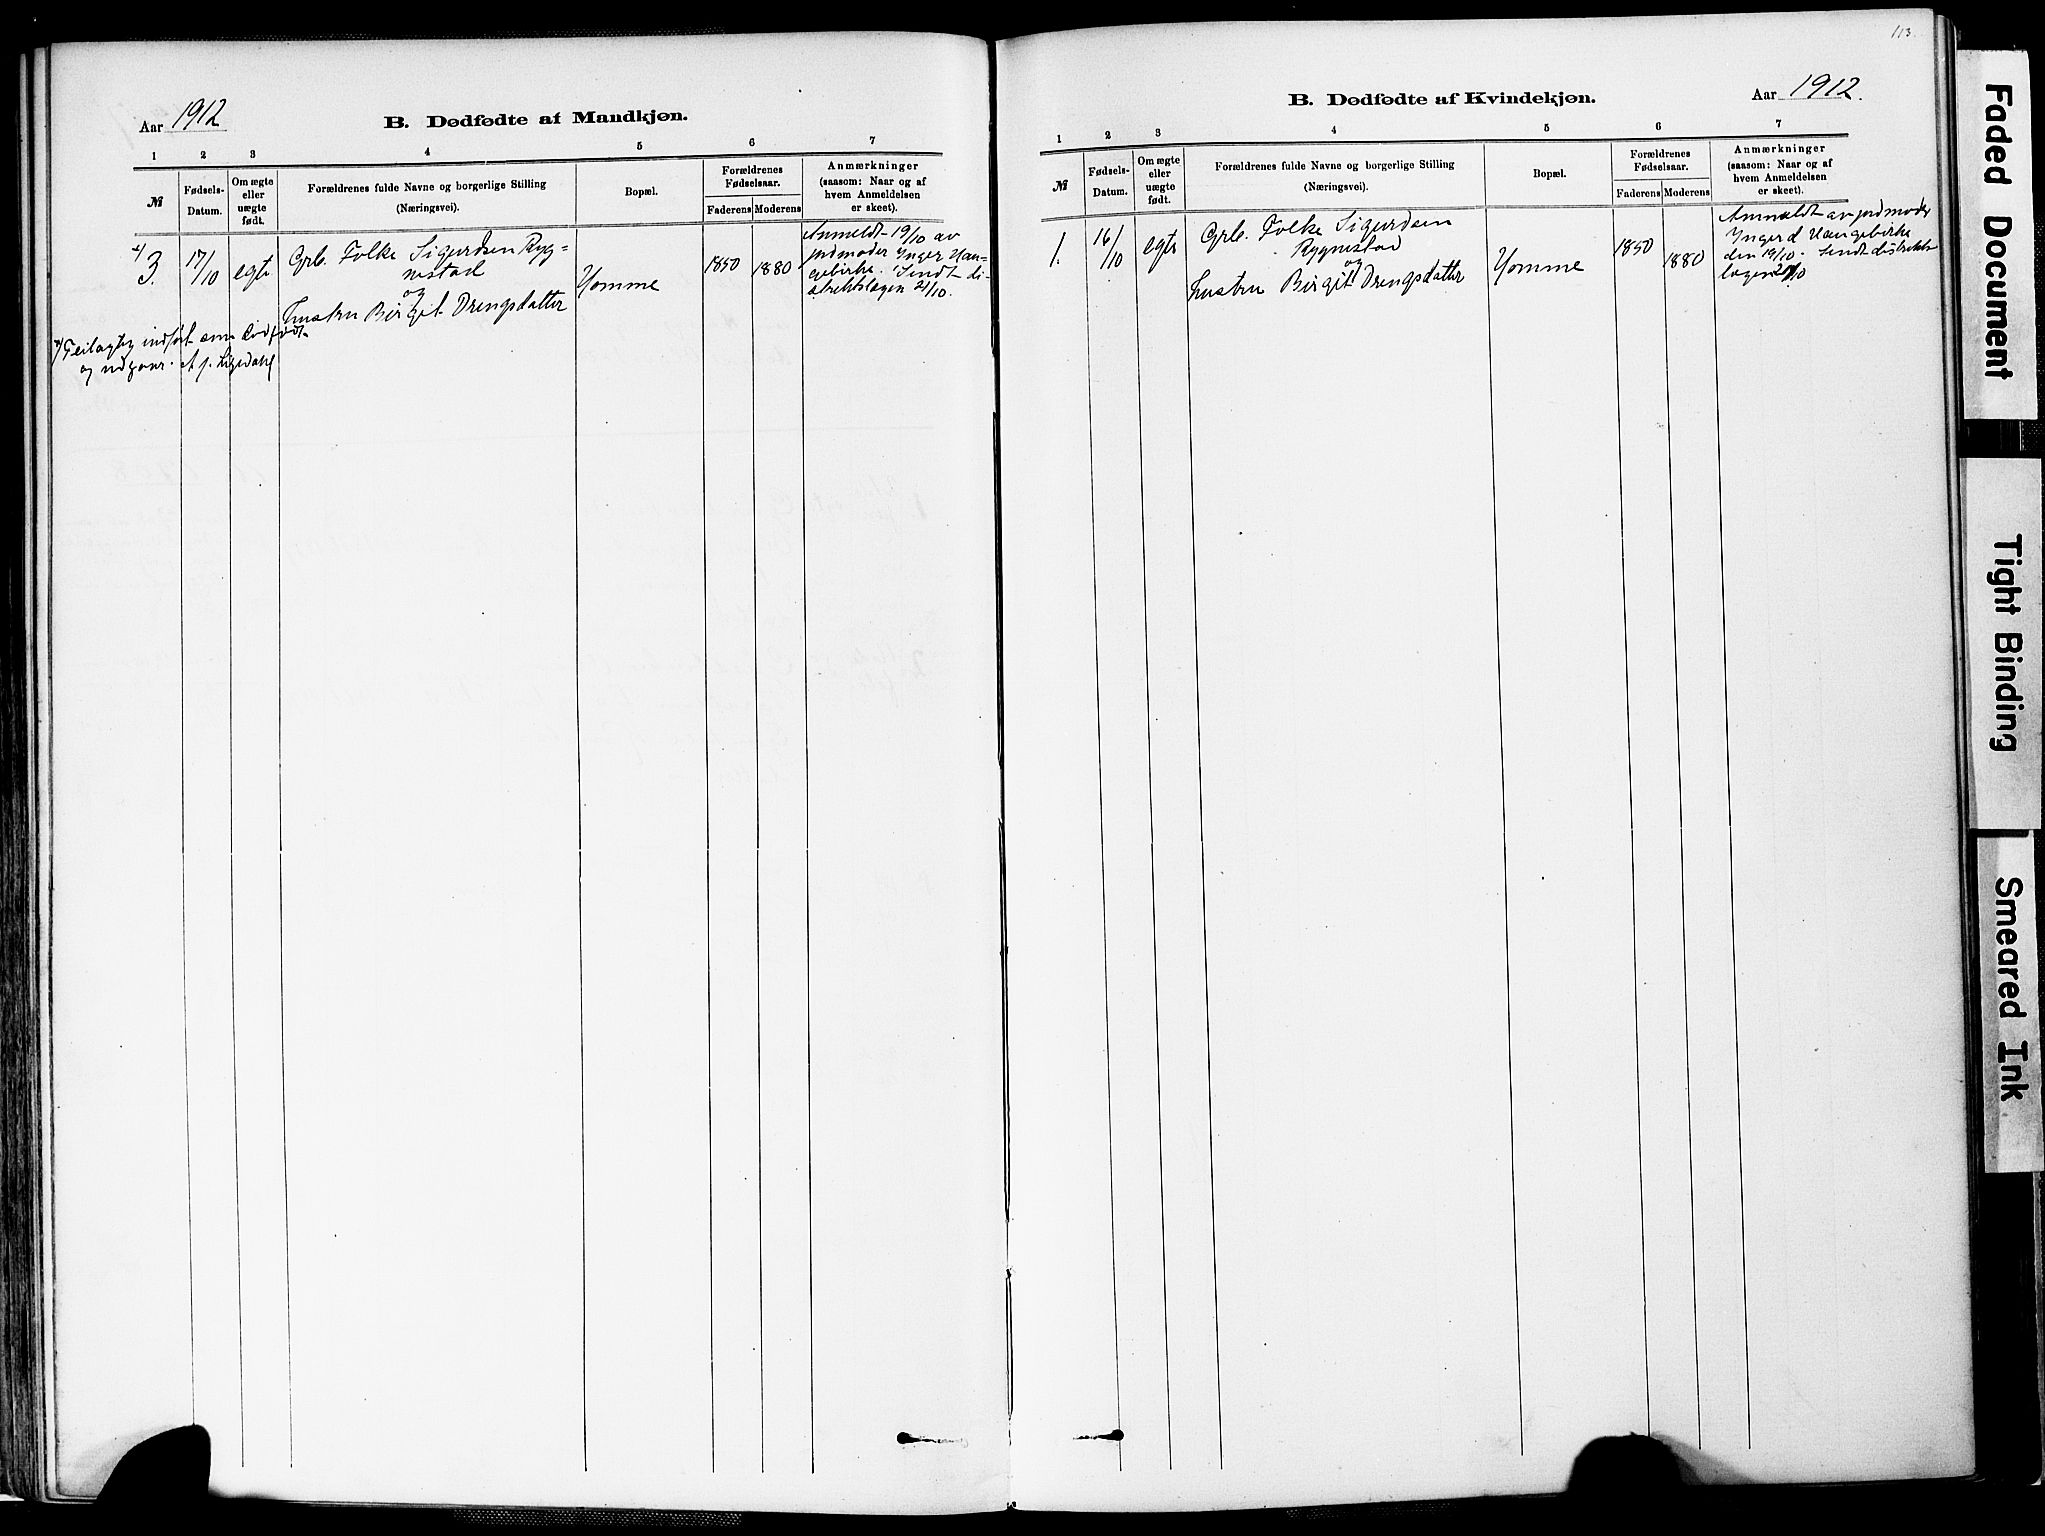 Aar 1912
B. Dødfødte af Mandkjøn.
1 2 3 4 5 6 7
№
Fødsels-
Datum.
Om ægte
eller
uægte
født.
Forældrenes fulde Navne og borgerlige Stilling
(Næringsvei).
Bopæl.
Forældrenes
Fødselsaar.
Faderens Moderens
Anmærkninger
(saasom: Naar og af
hvem Anmeldelsen
er skeet).
3.
17/10
egte
Grb. Folke Sigurdsen Ryg=
nestad
og
hustru Birgit Drengsdatter
Homme
1850
1880
Anmeldt 19/10 av
jordmoder Ynger Hau-
gebirke. Sendt di-
striktslægen 21/10.
Feilagtig indført som dødfødt
og udgaar.
113.
B. Dødfødte af Kvindekjøn.
Aar 1912.
1 2 3 4 5 6 7
№
Fødsels-
Datum.
Om ægte
eller
uægte
født.
Forældrenes fulde Navne og borgerlige Stilling
(Næringsvei).
Bopæl.
Forældrenes
Fødselsaar.
Faderens Moderens
Anmærkninger
(saasom: Naar og af
hvem Anmeldelsen
er skeet).
1.
16/10
egte
Grb. Folke Sigurdsen
Rygnestad
og
hustru Birgit Drengsdatter
Homme
1850
1880
Anmeldt av jordmoder
Yngerd Haugebirke
den 19/10. Sendt distrikts-
lægen 21/10
Faded Document
Tight Binding
Smeared Ink